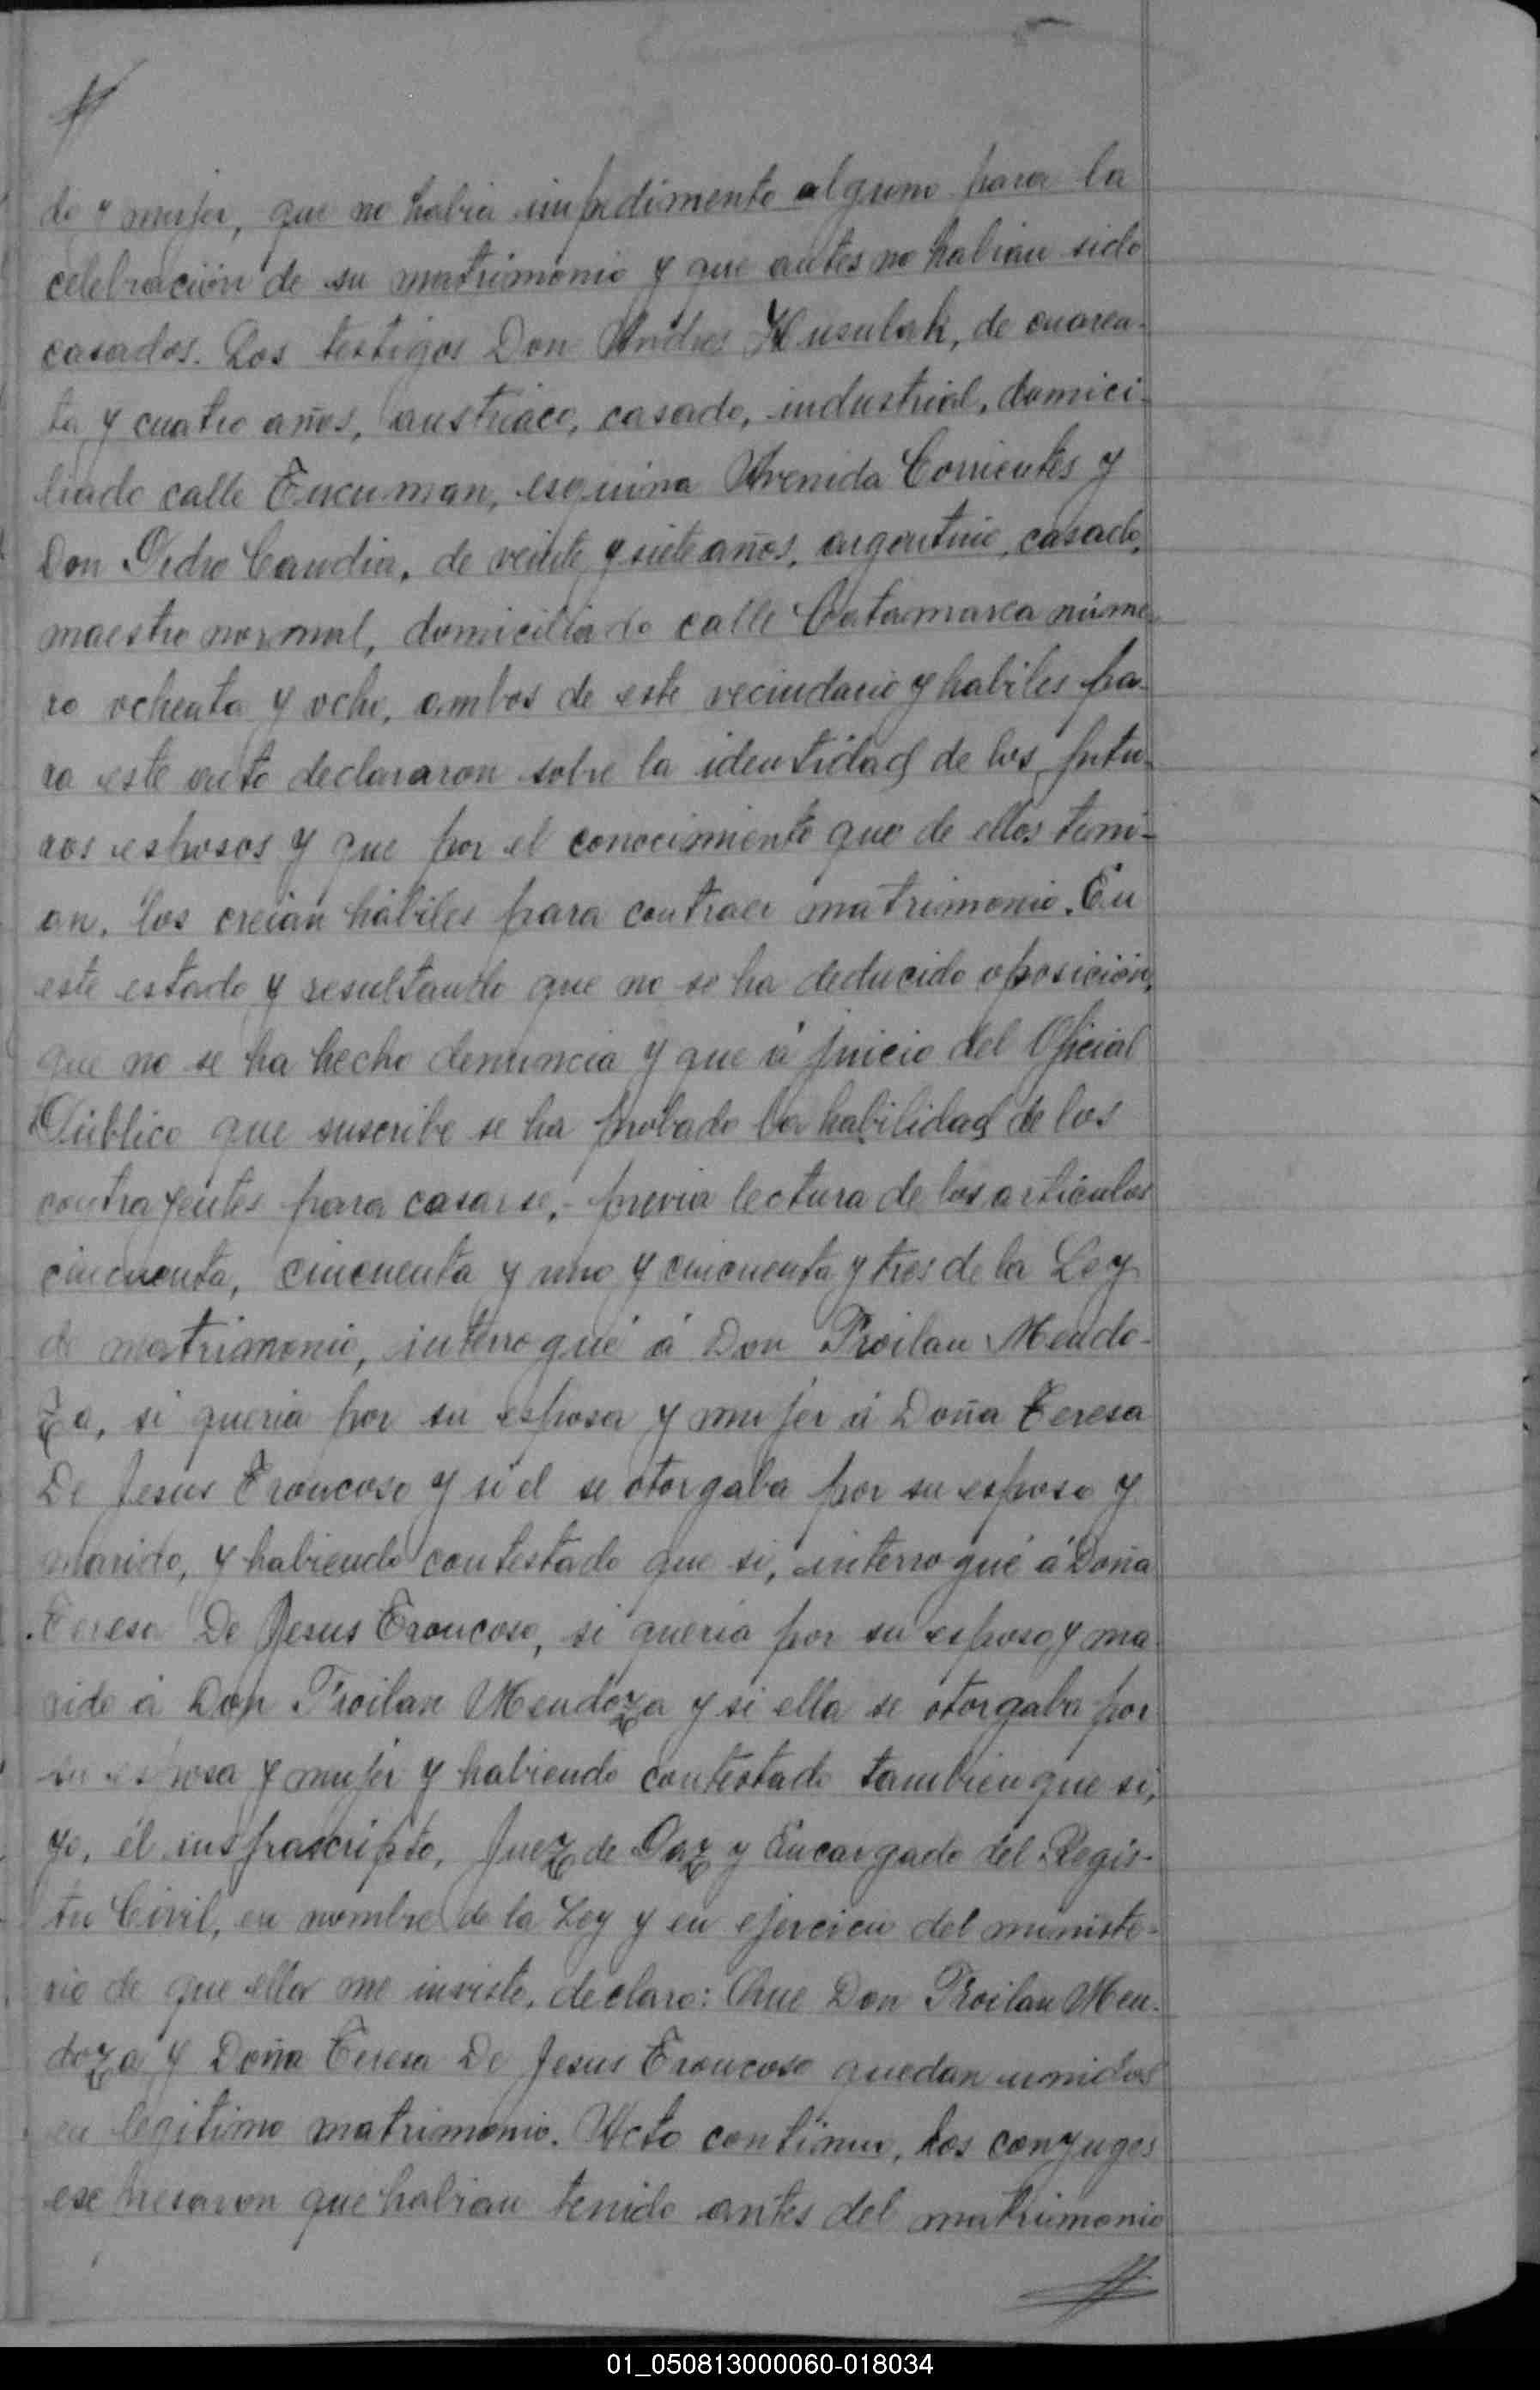 do y mujer, que no habia impedimento alguno para la
celebración de su matrimonio y que antes no habian sido
casados. Los testigos Don Andres Kusulak, de cuaren-
ta y cuatro años, austriaco, casado, industrial, domici-
liado calle Tucuman, esquina Avenida Corrientes y
Don Pedro Candia, de veinte y siete años, argentino, casado,
maestro normal, domiciliado calle Catamarca núme-
ro ochenta y ocho, ambos de este vecindario y habiles pa-
ra este acto declararon sobre la identidad de los futu-
ros esposos y que por el conocimiento que de ellos teni-
an, los creian hábiles para contraer matrimonio. En
este estado y resultando que no se ha deducido oposición,
que no se ha hecho denuncia y que á juicio del Oficial
Público que suscribe se ha probado la habilidad de los
contrayentes para casarse, previa lectura de los articulos
cincuenta, cincuenta y uno y cincuenta y tres de la Ley
de matrimonio, interrogué á Don Froilan Mendo-
za, si queria por su esposa y mujer á Doña Teresa
De Jesus Troncoso y si él se otorgaba por su esposo y
marido, y habiendo contestado que si, interrogué á Doña
Teresa De Jesus Troncoso, si queria por su esposo y ma
rido á Don Froilan Mendoza y si ella se otorgaba por
su esposa y mujer y habiendo contestado tambien que si,
yo, él insfrascripto, Juez de Paz y Encargado del Regis-
tro Civil, en nombre de la Ley y en ejercicio del ministe-
rio de que ella me inviste, declaro: Que Don Froilan Men-
doza y Doña Teresa De Jesus Troncoso quedan unidos
en legitimo matrimonio. Acto continuo, los conyuges
espresaron que habian tenido antes del matrimonio
01_050813000060-018034